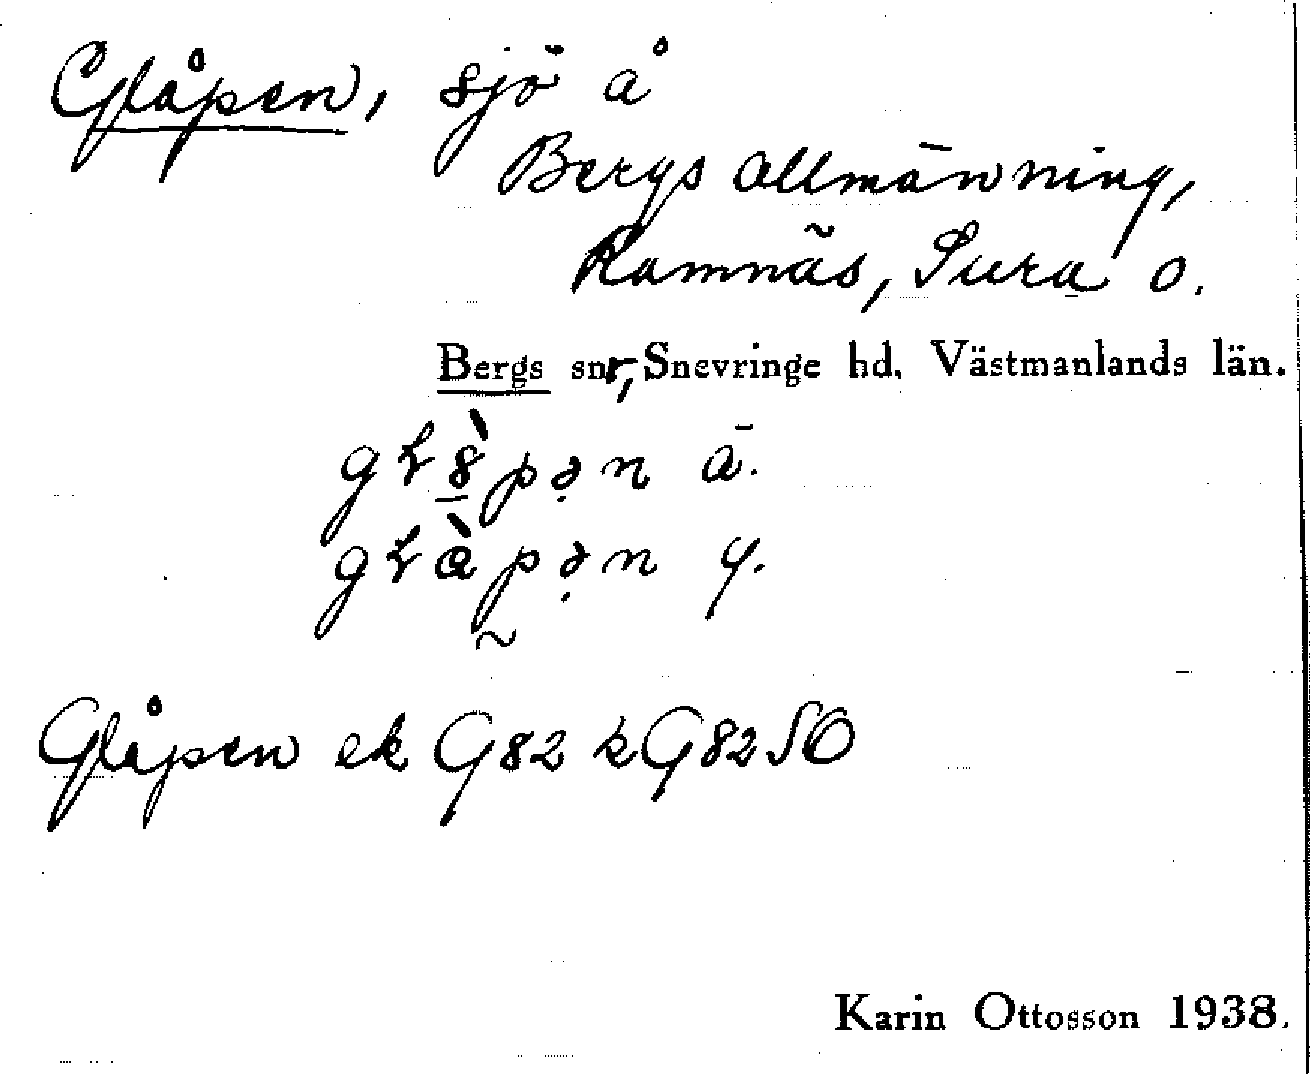 Glåpen, sjö å
Bergs allmänning,
Ramnäs, Sura o.
Bergs snr, Snevringe hd. Västmanlands län.
ä.
y.
Glåpen ek G82 kG82SO
Karin Ottosson 1938.